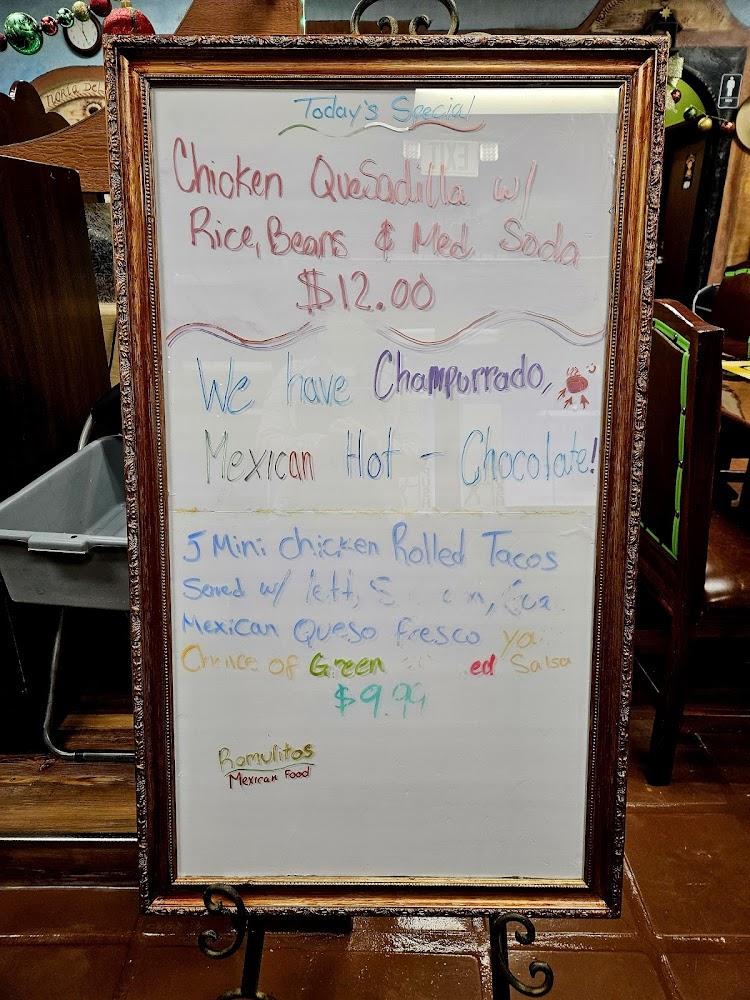 Today's Special
Chicken QueSadilla w/
Rice, Beans & Med Soda
$12.00
We have Champurrado,
Mexican Hot - Chocolate!
5 Mini chicken Rolled Tacos
Served w/ lett,
Mexican Queso fresco
Choice of Green ed Salsa
$9.99
Romulitos
Mexican Food
EXIT